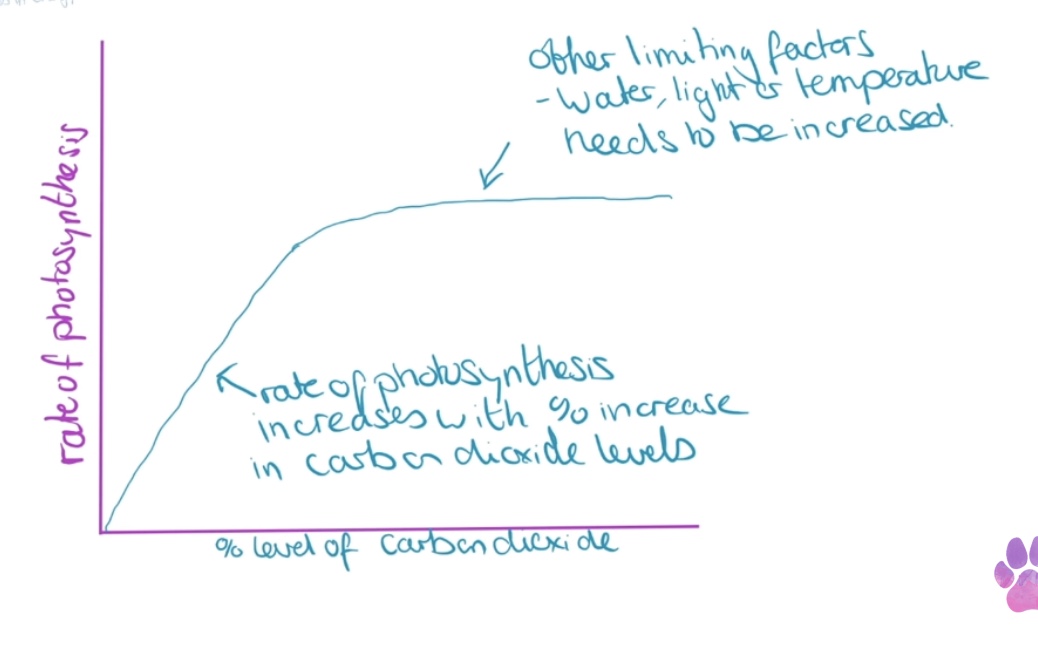 Other limiting factors
- Water, light or temperature
needs to be increased.
rate of photosynthesis
rate of photosynthesis
increases with % increase
in carbon dioxide levels
% level of carbon dioxide